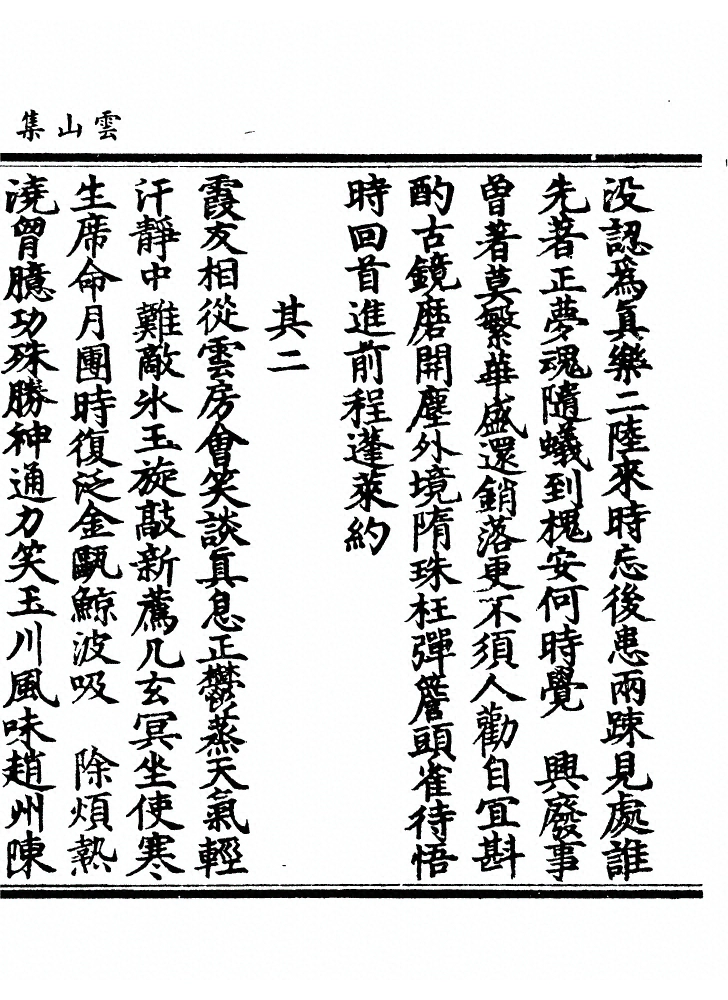 雲山集
没認爲眞樂二陸來時忘後患兩踈見處誰
先著正夢魂隨蟻到槐安何時覺　興廢事
曾著莫繁華盛還銷落更不須人勸自宜斟
酌古鏡磨開塵外境隋珠枉彈簷頭雀待悟
時回首進前程蓬萊約
其二
霞友相從雲房會笑談眞息正鬱蒸天氣輕
汗靜中難敵氷玉旋敲新薦几玄冥坐使寒
生席命月團時復泛金甌鯨波吸　除煩熱
澆胷臆功殊勝神通力笑玉川風味趙州陳